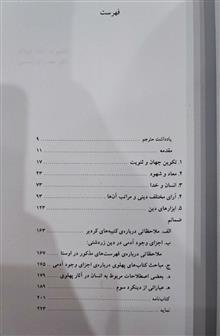 فهرست
یادداشت مترجم ۹
مقدمه ۱۱
۱. تکوین جهان و ثنویت ۱۷
۲. معاد و شهود ۴۳
۳. انسان و خدا ۷۳
۴. آرای مختلف دینی و مراتب آن‌ها ۹۳
۵. ابزارهای دین ۱۲۳
ضمائم
الف. ملاحظاتی درباره‌ی کتیبه‌های کردیر ۱۶۳
ب. اجزای وجود آدمی در دین زردشتی:
ملاحظاتی درباره‌ی فهرست‌های مذکور در اوستا ۱۶۷
ج. مباحث کتاب‌های پهلوی درباره‌ی اجزای وجود آدمی ۱۷۵
د. بعضی اصطلاحات مربوط به انسان در آثار پهلوی ۱۷۹
ه. عباراتی از دینکرد سوم ۱۸۷
کتابنامه ۲۰۱
نمایه ۲۲۳